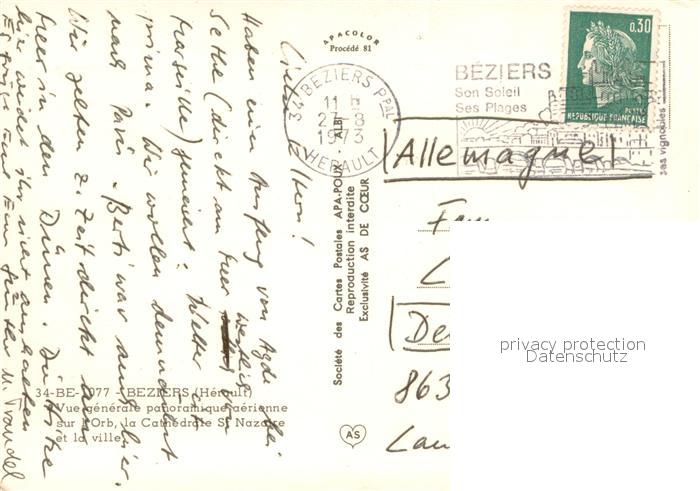 APACOLOR
Procédé 81
34 BEZIERS PPAL
11 H
27-8
1973
HERAULT
BÉZIERS
Son Soleil
Ses Plages
ses vignobles
0,30
POSTES
REPUBLIQUE FRANÇAISE
Allemagne!
Fam
L
De
863
Lau
privacy protection
Datenschutz
Société des Cartes Postales APA-POUX - ALBI
Reproduction interdite
Exclusivité AS DE CŒUR
AS
34-BE- 077 - BEZIERS (Hérault)
Vue générale panoramique aérienne
sur l'Orb, la Cathédrale St Nazaire
et la ville
Liebe Eltern!
Haben einen Ausflug von Agde
Sethe (direkt am Meer westlich von
Marseille) gemacht. Wetter ist
prima. Wir wollen demnächst
nach Paris. Berti war auch hier.
Wir zelten z. Zeit direkt am
Meer in den Dünen. Die Hitze
hier würdet ihr nicht aushalten
Es grüßt Euch Euer Günther u. Traudel